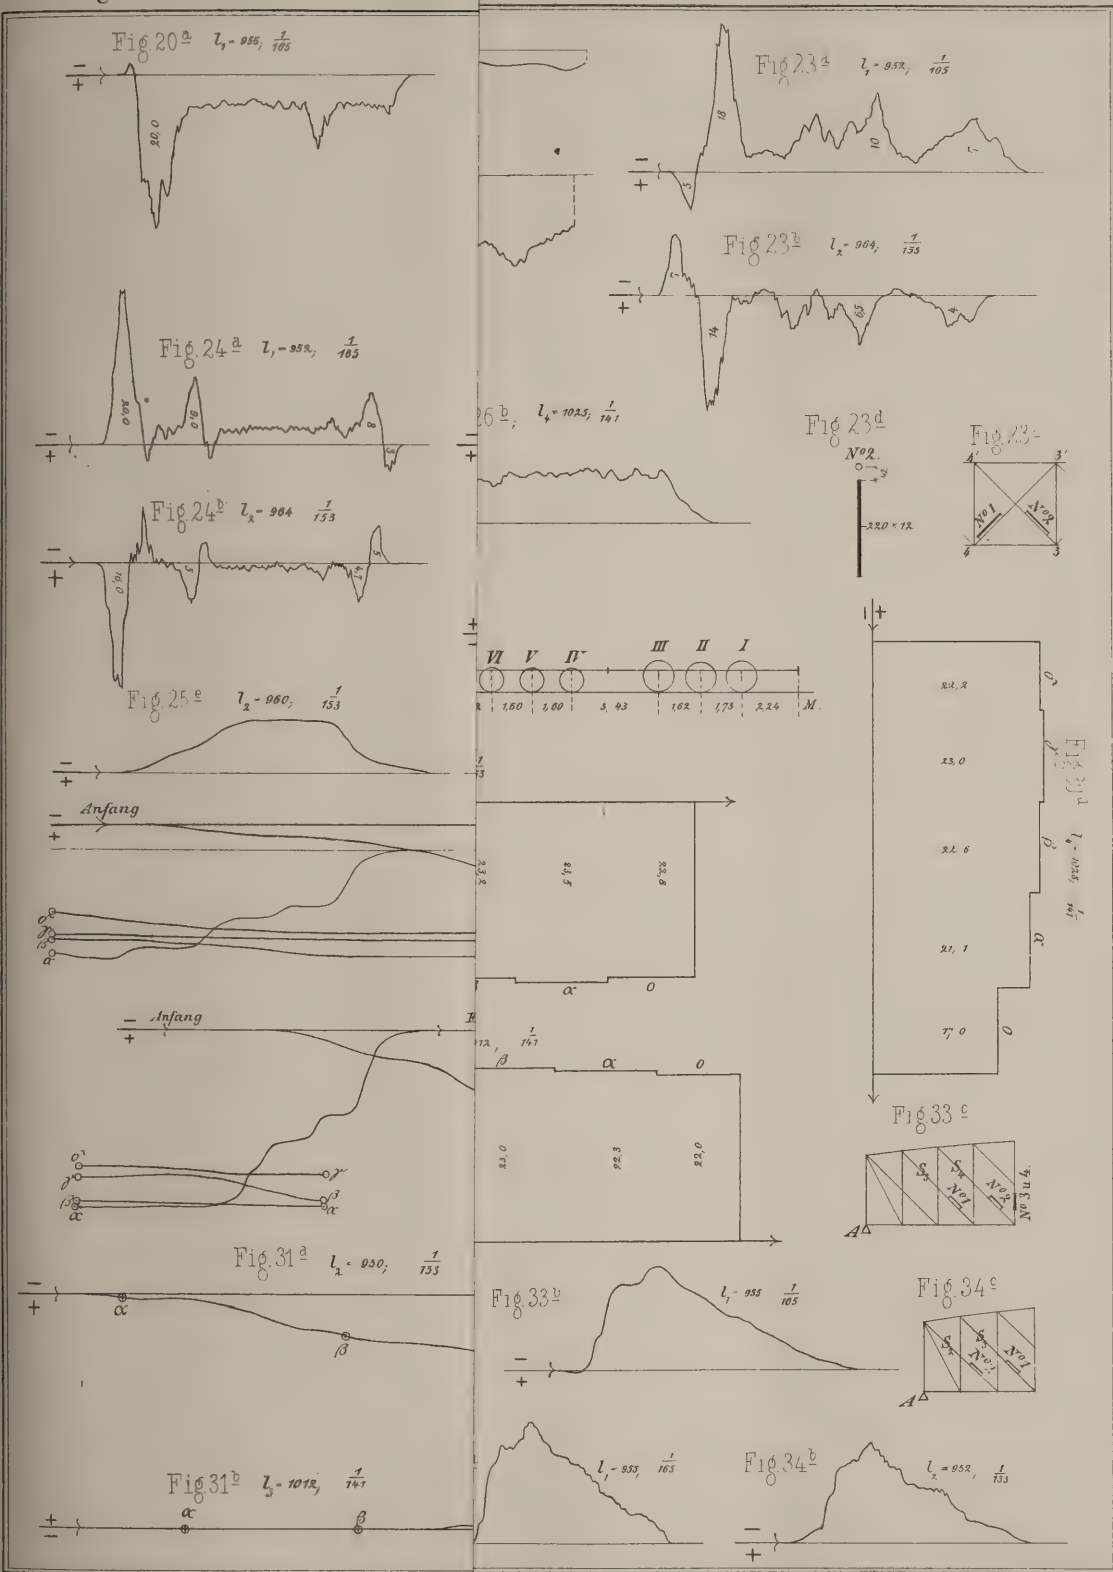 Fig. 20 a l₁ = 956; 1/165
− +
20,0
Fig. 24 a l₁ = 952; 1/165
− +
20,0 9,0 8 3
Fig. 24 b l₂ = 964 1/153
− +
16,0 5 4,7 5
Fig. 25 e l₂ = 960; 1/153
− +
Anfang
− +
δ
γ
β
α
Anfang
− +
δ γ
γ β
β α
α
Fig. 31 a l₂ = 950; 1/153
− +
α β
Fig. 31 b l₃ = 1012; 1/141
α β
+ −
Fig. 23 a l₁ = 952; 1/165
− +
5 18 10 7
Fig. 23 b l₂ = 964; 1/153
− +
7 14 6,5 4
26 b; l₄ = 1025; 1/141
− +
Fig. 23 d
Nº2.
220 × 12
Fig. 23
4' 3'
Nº1 Nº2
4 3
+ −
VI V IV III II I
1,60 1,60 3,43 1,62 1,73 2,24 M.
23,2 23,5 22,8
α 0
12, 1/141
β α 0
23,0 22,3 22,0
− +
22,2 δ
23,0 γ
22 6 β
21, 1 α
17, 0 0
l₄ = 1025; 1/141
Fig. 33 c
S₃ S₄
Nº1 Nº2
Nº 3 u 4.
A
Fig. 33 b l₁ = 955 1/165
− +
Fig. 34 c
S₂ S₃
Nº1
A
l₁ = 955, 1/165
Fig. 34 b l₂ = 952, 1/153
− +